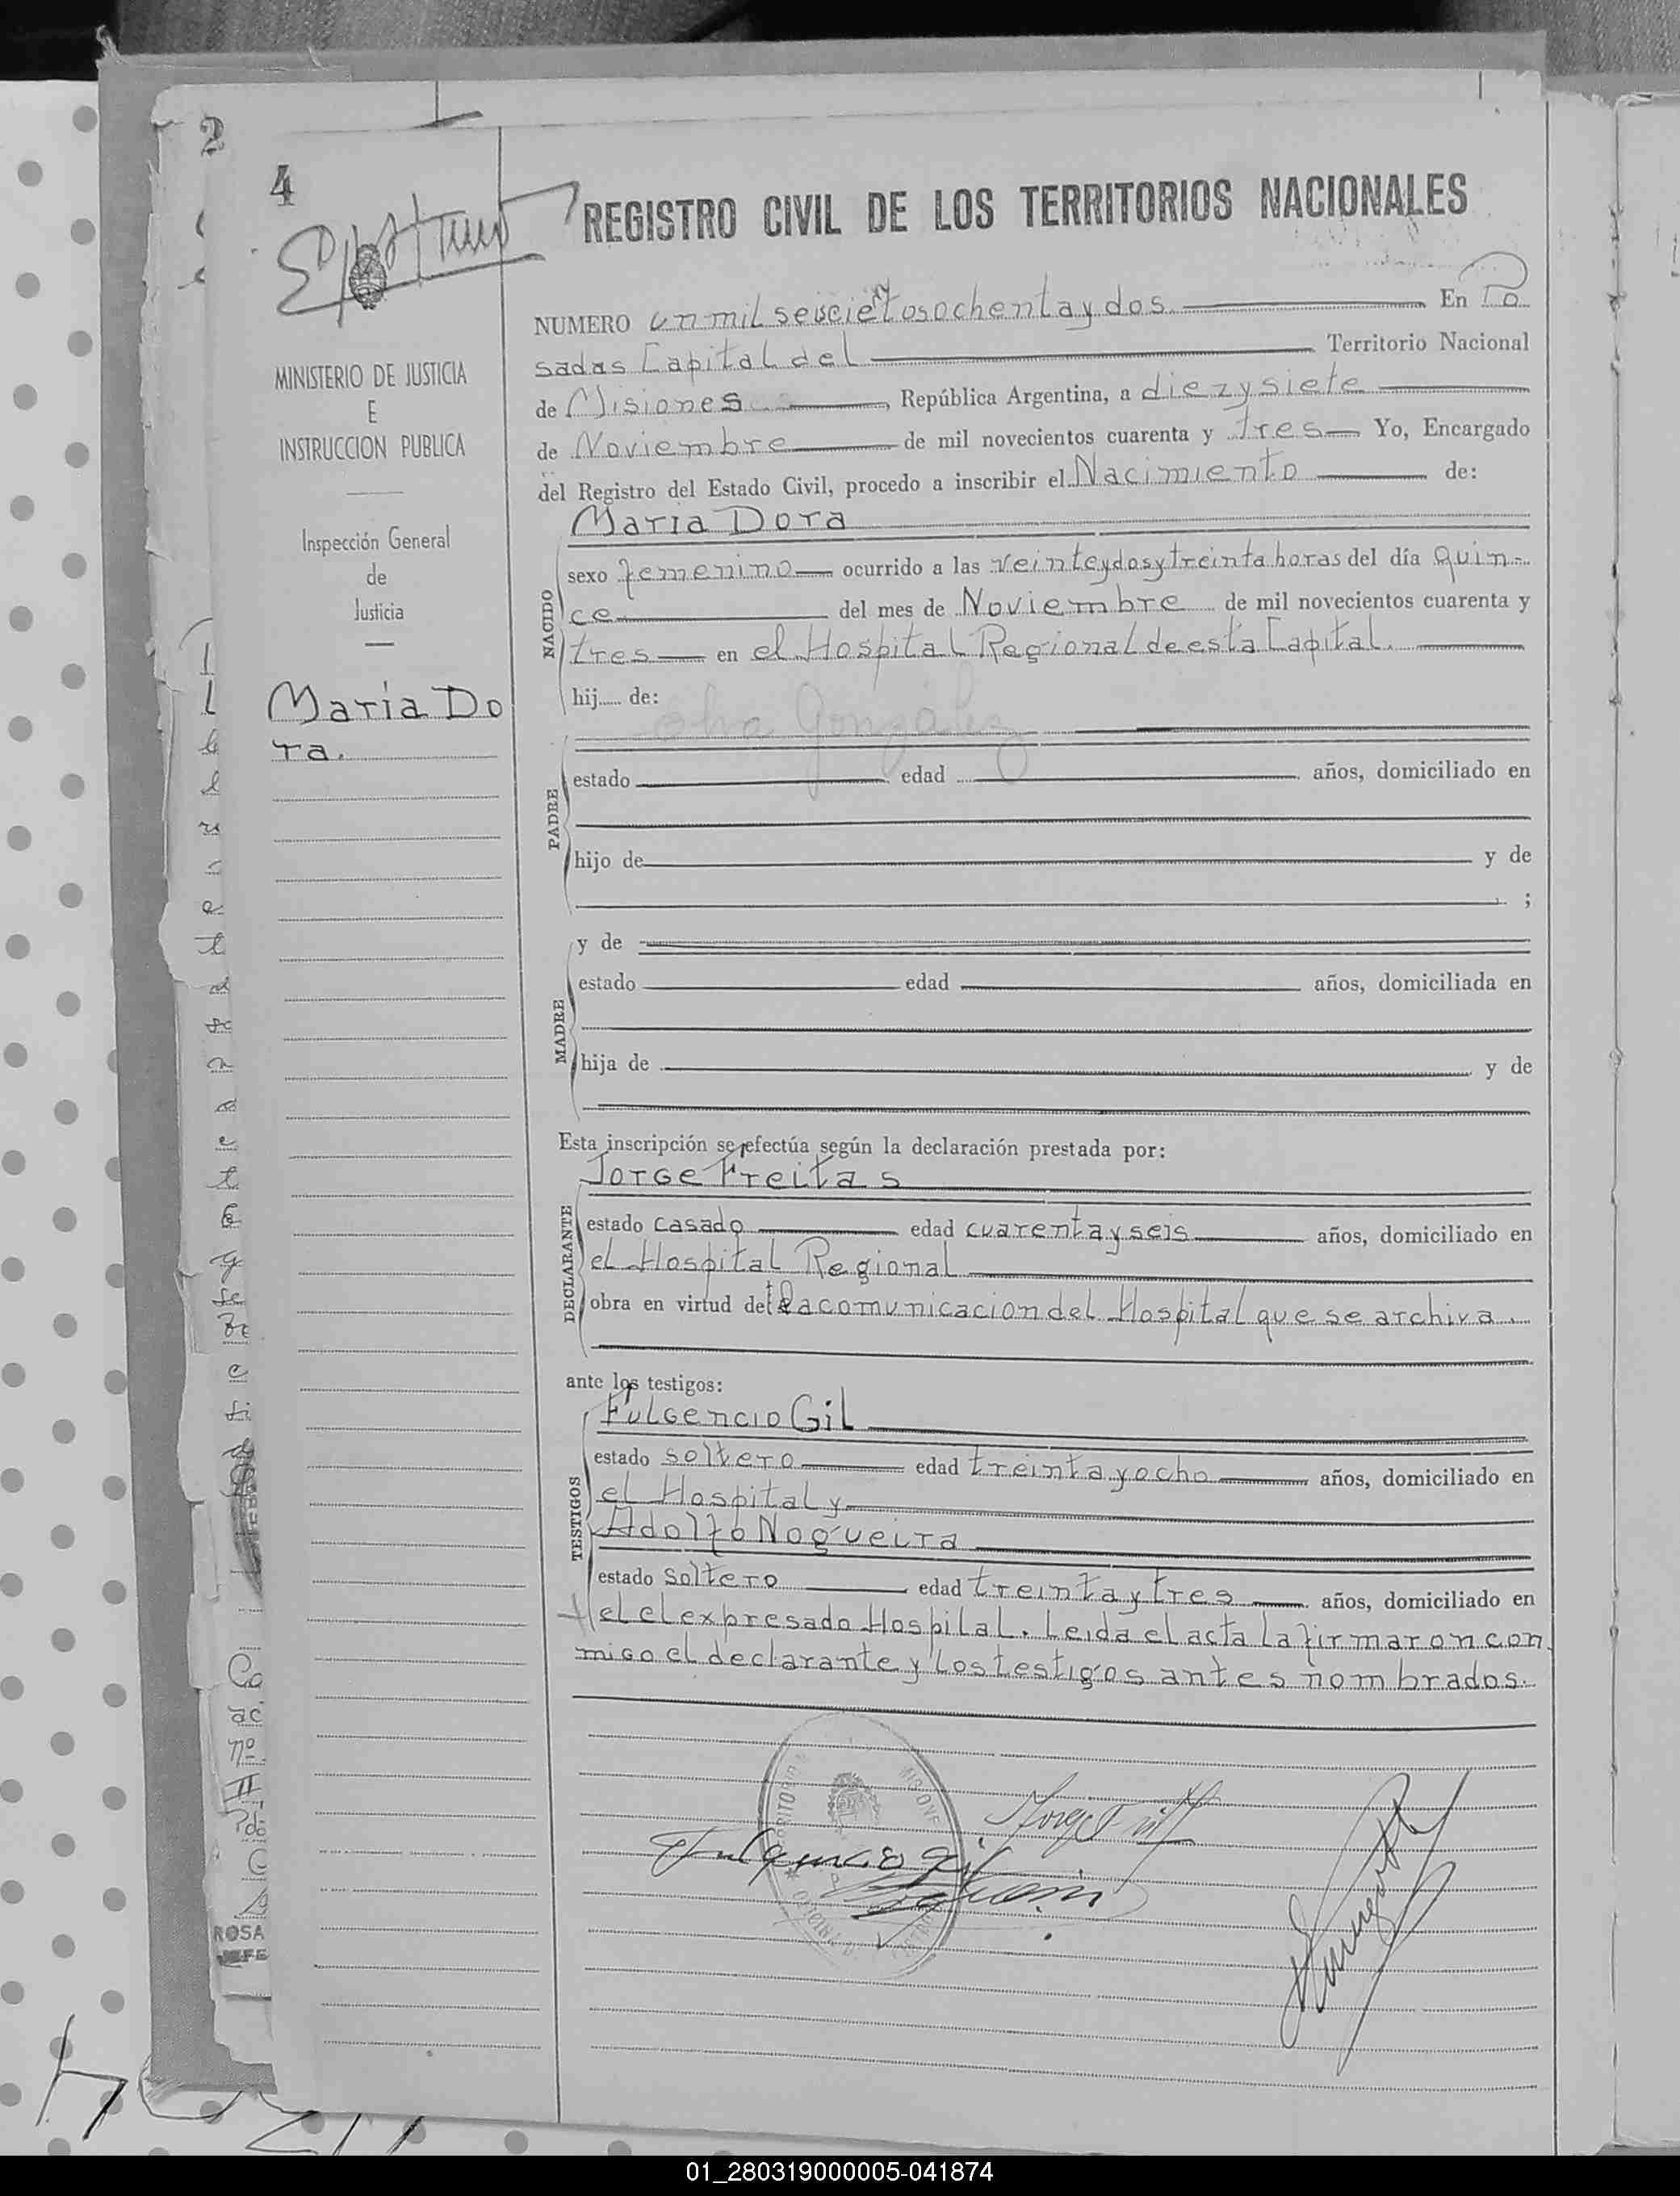 2
4
REGISTRO CIVIL DE LOS TERRITORIOS NACIONALES
MINISTERIO DE JUSTICIA
E
INSTRUCCION PUBLICA
Inspección General
de
Justicia
Maria Do
ra.
NUMERO un mil seiscientos ochenta y dos En Po
sadas Capital del Territorio Nacional
de Misiones, República Argentina, a diez y siete
de Noviembre de mil novecientos cuarenta y tres Yo, Encargado
del Registro del Estado Civil, procedo a inscribir el Nacimiento de:
Maria Dora
NACIDO
sexo femenino ocurrido a las veinte y dos y treinta horas del día quin-
ce del mes de Noviembre de mil novecientos cuarenta y
tres en el Hospital Regional de esta Capital.
hij..... de:
Gonzalez
PADRE
estado edad años, domiciliado en
hijo de y de
;
MADRE
y de
estado edad años, domiciliada en
hija de y de
Esta inscripción se efectúa según la declaración prestada por:
Jorge Freitas
DECLARANTE
estado casado edad cuarenta y seis años, domiciliado en
el Hospital Regional
obra en virtud de la comunicacion del Hospital que se archiva.
ante los testigos:
Fulgencio Gil
TESTIGOS
estado soltero edad treinta y ocho años, domiciliado en
el Hospital y
Adolfo Nogueira
estado soltero edad treinta y tres años, domiciliado en
el el expresado Hospital. Leida el acta la firmaron con
migo el declarante y los testigos antes nombrados.
Fulgencio Gil
ROSA
JEFE
01_280319000005-041874